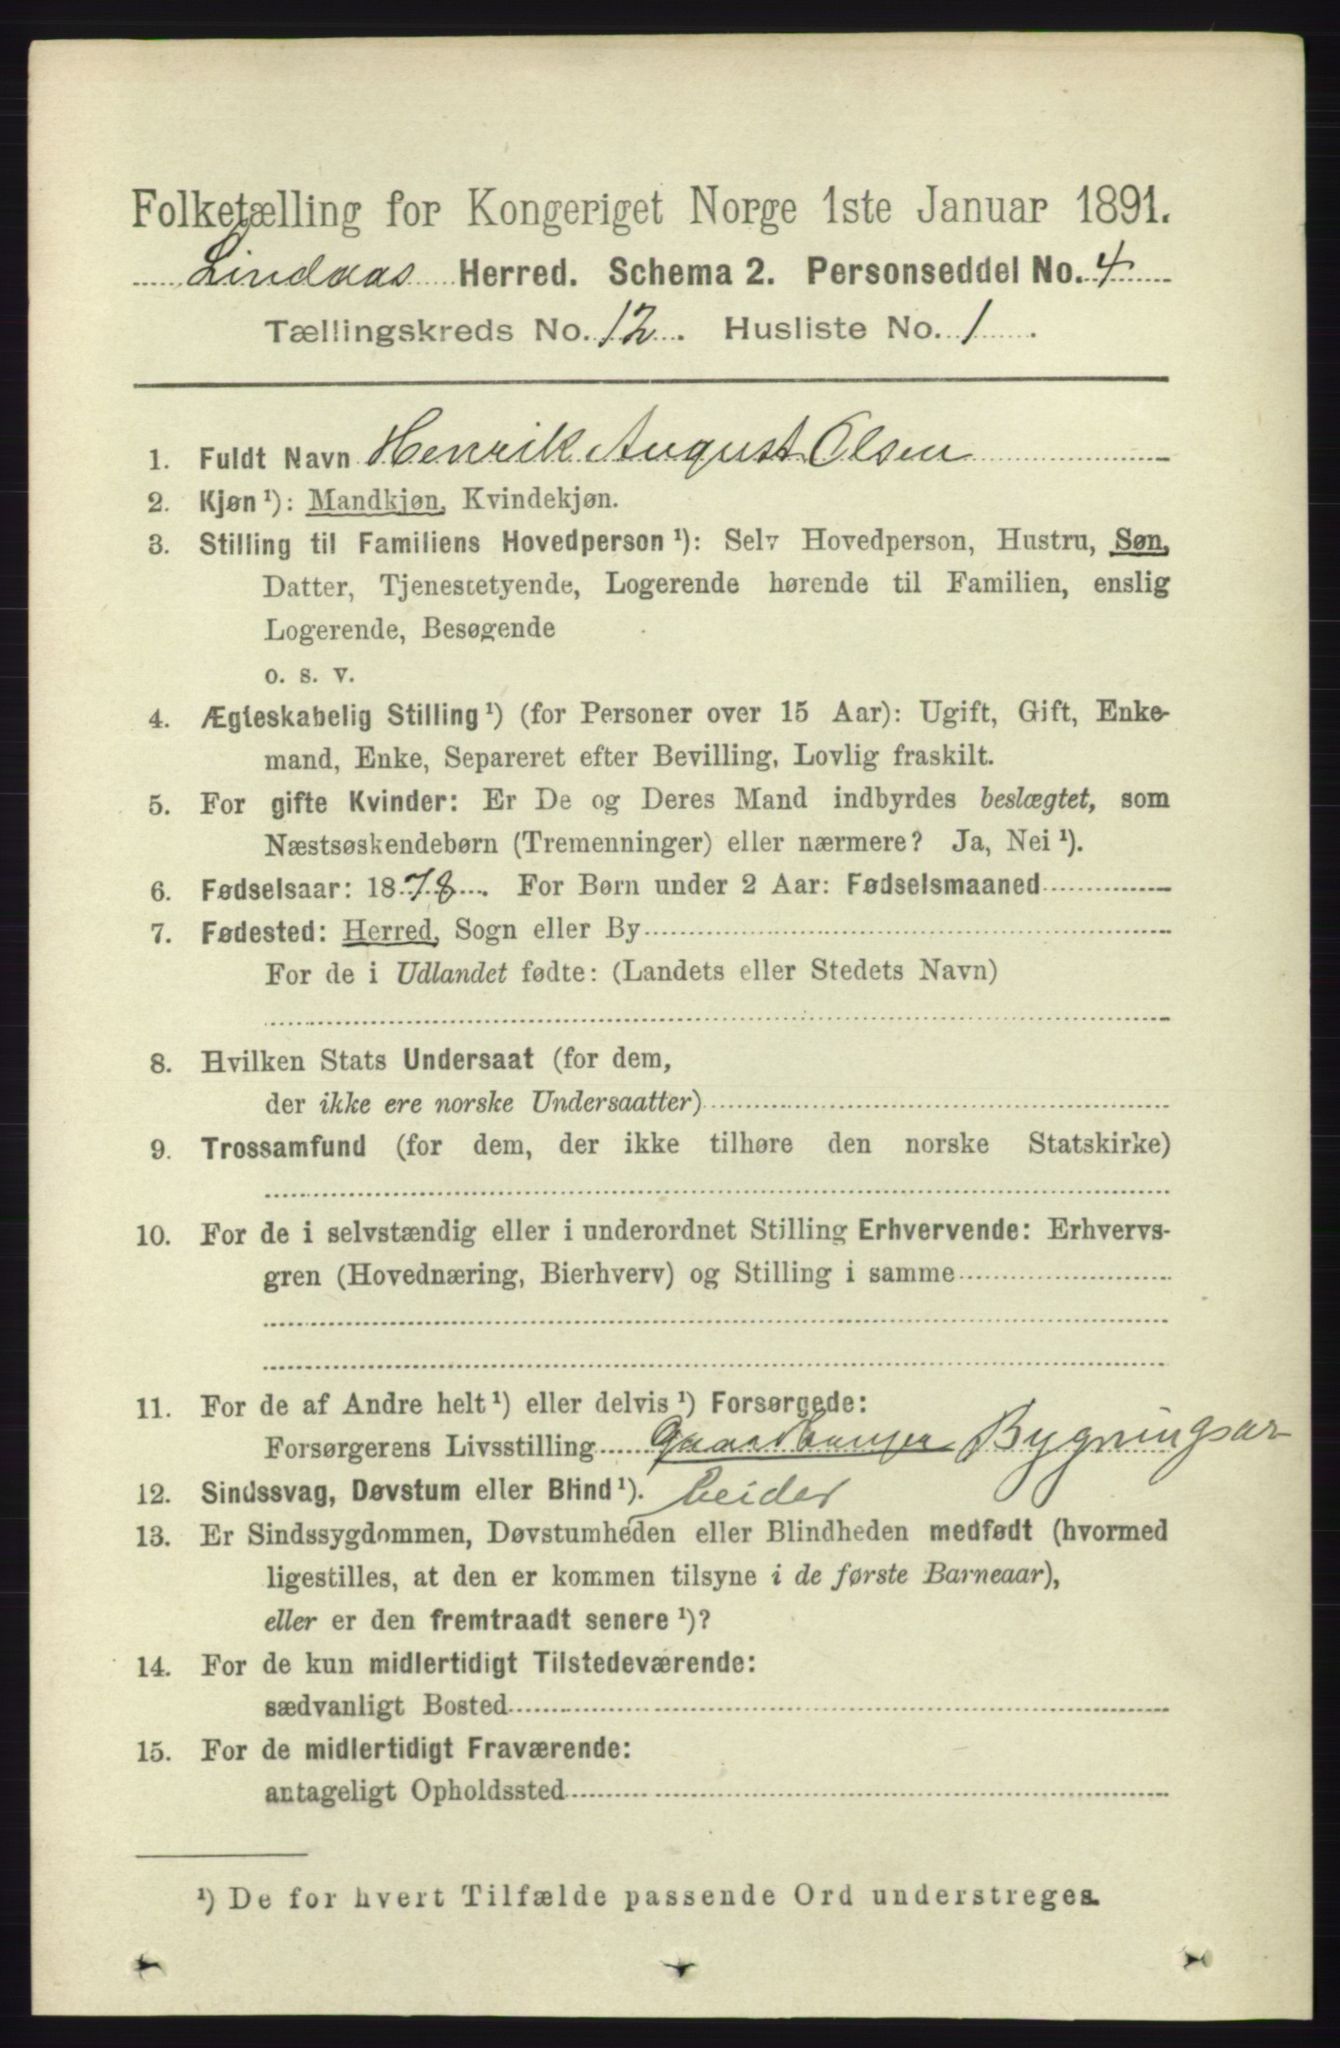 Folketælling for Kongeriget Norge 1ste Januar 1891.
Lindaas Herred. Schema 2. Personseddel No. 4
Tællingskreds No. 12. Husliste No. 1.
1. Fuldt Navn Henrik August Olsen
2. Kjøn ¹): Mandkjøn, Kvindekjøn.
3. Stilling til Familiens Hovedperson ¹): Selv Hovedperson, Hustru, Søn,
Datter, Tjenestetyende, Logerende hørende til Familien, enslig
Logerende, Besøgende
o. s. v.
4. Ægteskabelig Stilling ¹) (for Personer over 15 Aar): Ugift, Gift, Enke-
mand, Enke, Separeret efter Bevilling, Lovlig fraskilt.
5. For gifte Kvinder: Er De og Deres Mand indbyrdes beslægtet, som
Næstsøskendebørn (Tremenninger) eller nærmere? Ja, Nei ¹).
6. Fødselsaar: 1878. For Børn under 2 Aar: Fødselsmaaned
7. Fødested: Herred, Sogn eller By
For de i Udlandet fødte: (Landets eller Stedets Navn)
8. Hvilken Stats Undersaat (for dem,
der ikke ere norske Undersaatter)
9. Trossamfund (for dem, der ikke tilhøre den norske Statskirke)
10. For de i selvstændig eller i underordnet Stilling Erhvervende: Erhvervs-
gren (Hovednæring, Bierhverv) og Stilling i samme
11. For de af Andre helt ¹) eller delvis ¹) Forsørgede:
Forsørgerens Livsstilling Bygningsar-
12. Sindssvag, Døvstum eller Blind ¹). beider
13. Er Sindssygdommen, Døvstumheden eller Blindheden medfødt (hvormed
ligestilles, at den er kommen tilsyne i de første Barneaar),
eller er den fremtraadt senere ¹)?
14. For de kun midlertidigt Tilstedeværende:
sædvanligt Bosted
15. For de midlertidigt Fraværende:
antageligt Opholdssted
¹) De for hvert Tilfælde passende Ord understreges.